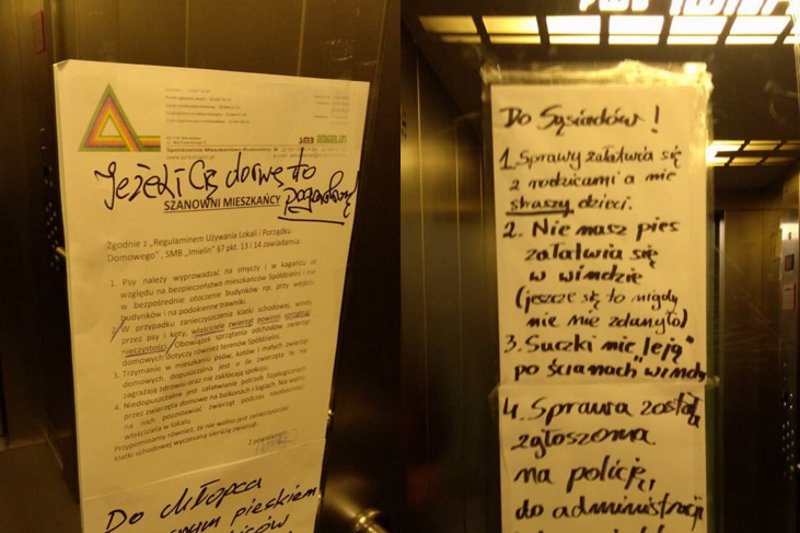 Spółdzielnia Mieszkaniowo-Budowlana
Jeżeli Cię dorwę to
pogardłuję
SZANOWNI MIESZKAŃCY
Zgodnie z „Regulaminem Używania Lokali i Porządku
Domowego", SMB „Imielin" §7 pkt. 13 i 14 zawiadamia:
1. Psy należy wyprowadzać na smyczy i w kagańcu ze
względu na bezpieczeństwo mieszkańców Spółdzielni i nie
w bezpośrednie otoczenie budynków np. przy wejściu
budynków i na podokienne trawniki.
2. W przypadku zanieczyszczenia klatki schodowej, windy
przez psy i koty, właściciele zwierząt powinni sprzątnąć
nieczystości. Obowiązek sprzątania odchodów zwierząt
domowych dotyczy również terenów Spółdzielni.
3. Trzymanie w mieszkaniu psów, kotów i małych zwierząt
domowych dopuszczalna jest o ile zwierzęta te nie
zagrażają zdrowiu oraz nie zakłócają spokoju.
4. Niedopuszczalne jest załatwianie potrzeb fizjologicznych
przez zwierzęta domowe na balkonach i logiach. Nie wolno
na nich pozostawiać zwierząt podczas nieobecności
właściciela w lokalu.
Przypominamy również, że nie wolno jest zanieczyszczać
klatki schodowej wyczesaną sierścią zwierząt.
Z poważaniem
Do chłopca
pieskiem
Do Sąsiadów!
1. Sprawy załatwia się
z rodzicami a nie
straszy dzieci.
2. Nie nasz pies
załatwia się
w windzie
(jeszcze się to nigdy
nie nie zdarzyło)
3. Suczki nie „leją"
po ścianach windy
4. Sprawa została
zgłoszona
na policję,
do administracji